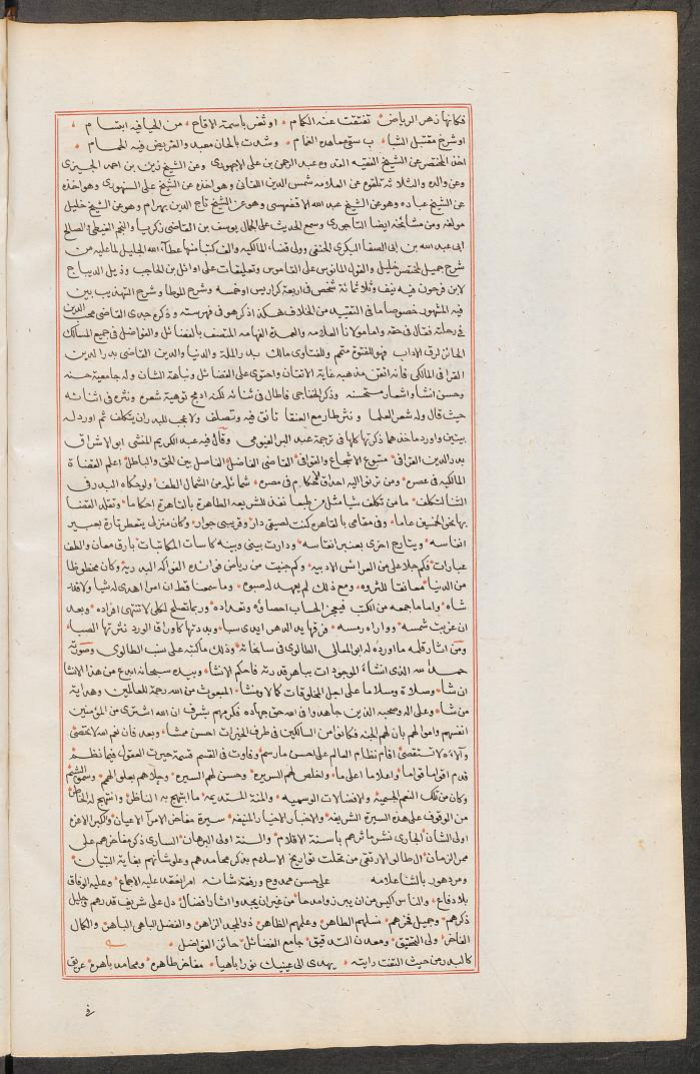 فكانها زهر الرياض تفتقت عنه الكمام او ثغر باسمة الاقاح من الحيا فيه ابتسام
او شرخ مقتبل الشباب سقى معاهده الغمام وشدت بالحان معبد والغريض فيه الحمام
اخذ المختصر عن الشيخ الفقيه عبد الرحمن بن على الاجهورى وعن الشيخ زين بن احمد الجيزى
وعن والده والثلاثة تلقوه عن العلامه شمس الدين اللقانى وهو اخذه عن الشيخ على السنهورى وهو اخذه
عن الشيخ عباده وهو عن الشيخ عبد الله الاقفهسى وهو عن الشيخ تاج الدين بهرام وهو عن الشيخ خليل
مولفه ومن مشائخه ايضا التاجورى وسمع الحديث على الجمال يوسف بن القاضى زكريا والنجم الغيطى والصالح
ابى عبد الله بن ابى الصفا البكرى الحنفى وولى قضاء المالكيه والف كتبا منها عطاء الله الجليل لما عليه من
شرح جميل لمختصر خليل والقول المانوس على القاموس وتعليقات على اوائل بن الحاجب وذيل الديباج
لابن فرحون فيه نيف وثلاثمائة شخص فى اربعة كراريس او خمسه وشرح الموطا وشرح التهذيب بين
فيه المشهور خصوصا ما فى التقييد من الخلاف هكذا ذكر هو فى فهرسته وذكره جدى القاضى محب الدين
فى رحلته فقال فى حقه واما مولانا العلامه والعمدة الفهامه المتصف بالفضائل والفواضل فى جميع المسالك
الحائز لرق الاداب فهو للفتوة متمم وللفتاوى مالك بدر الملة والدنيا والدين القاضى بدر الدين
القرافى المالكى فانه اتقن مذهبه غاية الاتقان واحتوى على الفضائل ونباهة الشان وله جامعية حسنه
وحسن انشا واشعار مستحسنه وذكر الخفاجى فاطال فى ثنائه لكنه ادمج توهية شعره ونثره فى اثنائه
حيث قال وله شعر العلما ونثر طار مع العنقا تانق فيه وتصلف ولا عجب للبدر ان يتكلف ثم اورد له
بيتين واورد ماخذهما ذكرتها كلها فى ترجمة عبد البر الفيومى وقال فيه عبد الكريم المنشى ابو الاشراق
بدر الدين القرافى متبوع الاشجاع والقوافى القاضى الفاضل الفاصل بين الحق والباطل اعلم القضاة
المالكيه فى عصره ومن ترنو اليه احداق المكارم فى مصره شمائله من الشمال الطف ولو حكاه البدر فى
الثنا لتكلف ما من تكلف شيا مثل من طبعا نفذ للشريعه الطاهرة بالقاهرة احكاما وتقلد القضا
بها نحو الخمسين عاما وفى مقامى بالقاهره كنت لصيق داره وقريب جواره وكان منزلى يتعطر تارة بعبير
انفاسه ويتارج اخرى بعنبر انفاسه ودارت بينى وبينه كاسات المكاتبات بارق معان والطف
عبارات فكم جلا على من العرائس الادبيه وكم جنيت من رياض فوائده الفواكه البدريه وكان محظوظا
من الدنيا معانقا للثروه ومع ذلك لم يعهد له صبوه وما سمعنا قط ان امرا اهدى له شيا ولا قلامة
شاه واما ما جمعه من الكتب فيعجز الحساب احصائه وتعداده وربما تصلح لكلى لا تنتهى افراده وبعد
ان غربت شمسه وواراه رمسه فرقها يد الدهر ايدى سبا وبددتها كاوراق الورد نثرتها الصبا
ومن اثار قلمه ما اورده له ابو المعالى الطالوى فى سانحاته وذلك ما كتبه على نسب الطالوى وصورته
حمدا لله الذى انشاء الموجودات بباهر قدرته فاحكم الانشا وبيده سبحانه ابدع من هذا الانشا
ان شا وصلاة وسلاما على اجل المخلوقات كمالا ومنشا المبعوث من الله رحمة للعالمين وهداية
من شا وعلى اله وصحبه الذين جاهدوا فى الله حق جهاده فكرمهم بشرف ان الله اشترى من المؤمنين
انفسهم واموالهم بان لهم الجنه فكانوا من السالكين فى طرف الخيرات احسن ممشا وبعد فان نعم الله لا تحصى
وآلاءه لا تستقصى اقام نظام العالم على احسن مارسم وفاوت فى القسم قسمة حيرت العقول فيما نظم
قدم اقواما قواما واعلاما اعلاما واخلص لهم السريره وحسن لهم السيره وحلاهم بعلى الهمم وسمو الشيم
وكان من تلك النعم الجسيمة والافضالات الوسيمه والمنة المستديمه ما ابتهج به الناظر وانتهج له الخاطر
من الوقوف على هذه السيرة الشريفه والاخبار الاخيار المنيفه سيرة مفاخر الامرآ الاعيان والكبرا الاعزه
اولى الشان الجارى نشر ماثرهم بالسنة الاقلام والسنة اولى البرهان السارى ذكر مفاخرهم على
ممر الزمان ال طالو الارتقى من تحلت تواريخ الاسلام بذكر محامدهم وعلو شانهم بغاية التبيان
ومر دهور بالثنا علامه على حسن ممدوح ورفعة شانه امر انعقد عليه الاجماع وعليه الوفاق
بلا دفاع والناس اكيس من ان يبرزوا مدحا من غير ان يجدوا اثار افضال دل على شريف قدرهم جليل
ذكرهم وجميل فخرهم فضلهم الطاهر وعلمهم الظاهر ذو المجد الزاهر والفضل الباهى الباهر والكمال
الفاخر ولى التحقيق ومعدن التدقيق جامع الفضائل حائز الفواضل
كالبدر من حيث التفت رايته يهدى الى عينيك نورا باهيا مفاخر طاهره ومحامد باهره عريق
فى